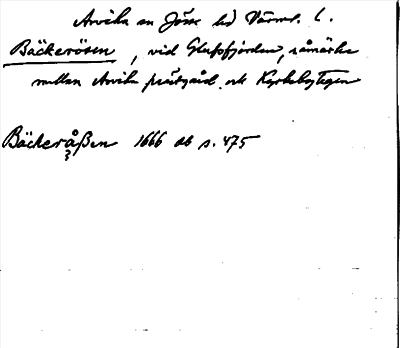 Arvika sn Jösse hd Värml. l.
Bäckerösen, vid Glafsfjorden, råmärke
mellan Arvika prästgård och Kyrkebytegen
Bäckeråßen 1666 ab s. 475